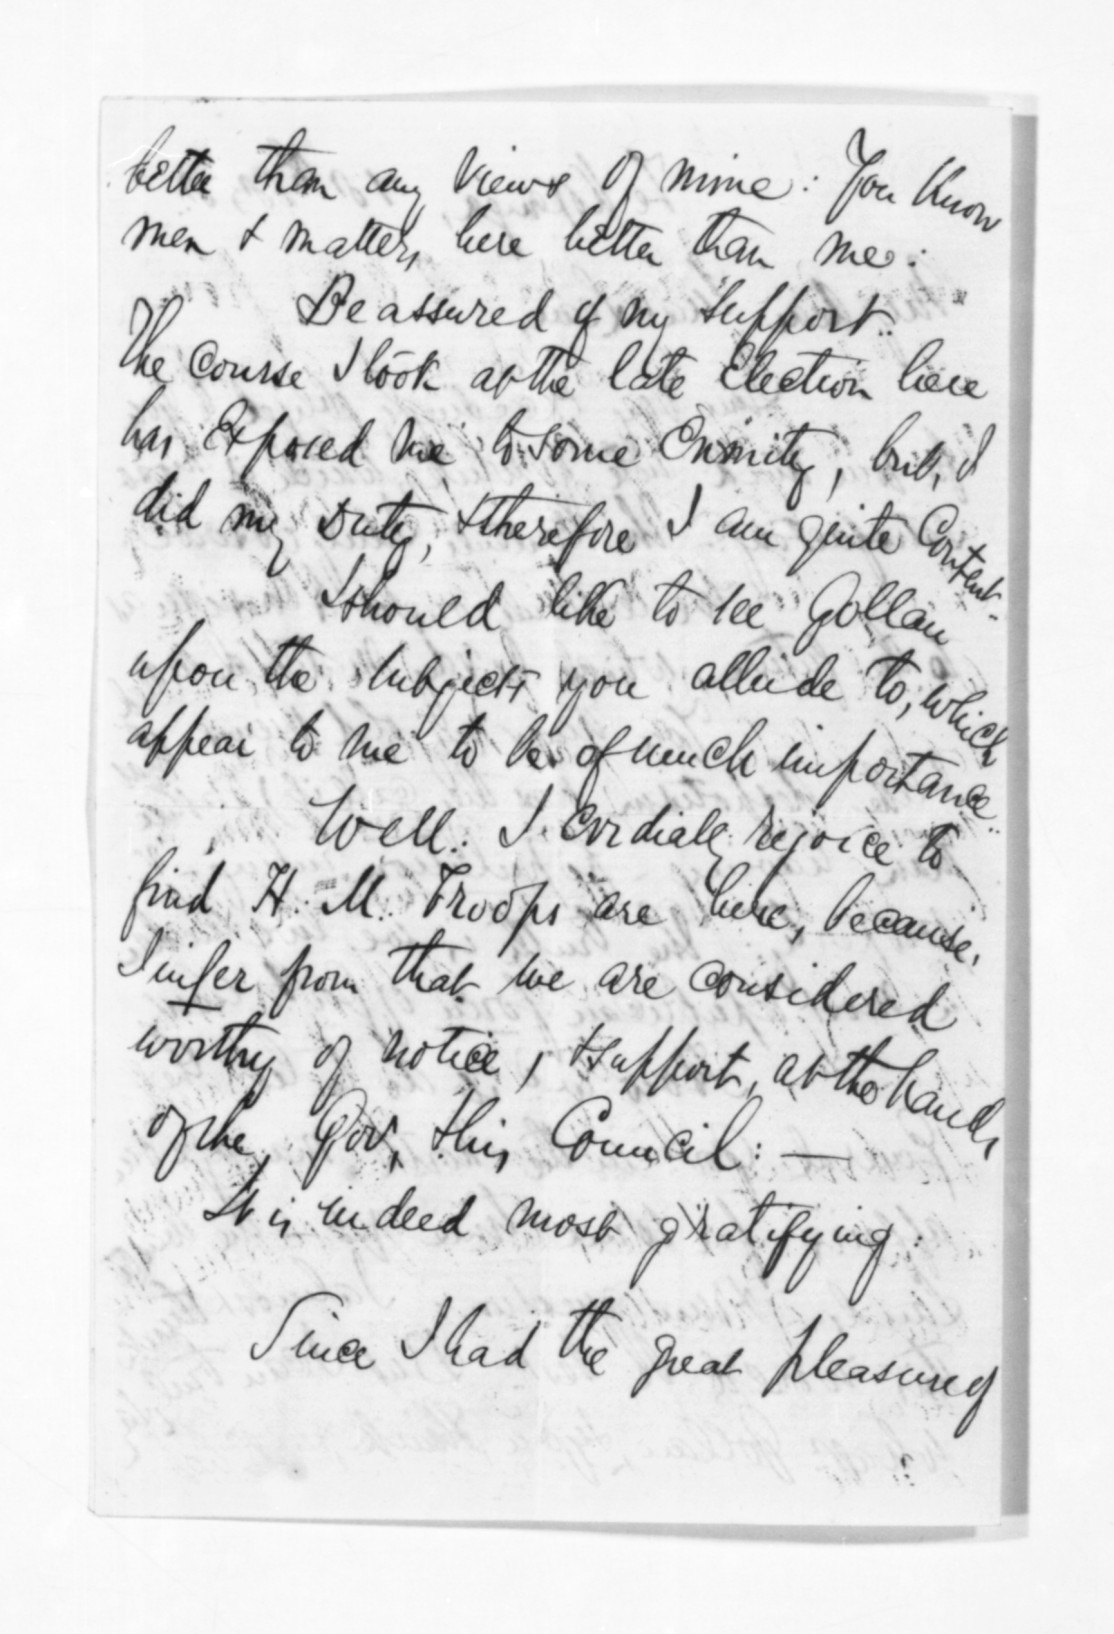 better than any views of mine: You know
men & matters here better than me:
Be assured of my support.
The course I took at the late Election here
has Exposed me to some Enmity, but, I
did my Duty, & therefore I am quite Content.
I should like to see Gollan
upon the subjects you allude to, which
appear to me to be of much importance.
Well. I cordially rejoice to
find H. M. Troops are here, because,
I infer from that we are considered
worthy of notice, & support, at the hands
of the Gov, & his Council: —
It is indeed most gratifying:
Since I had the great pleasure of